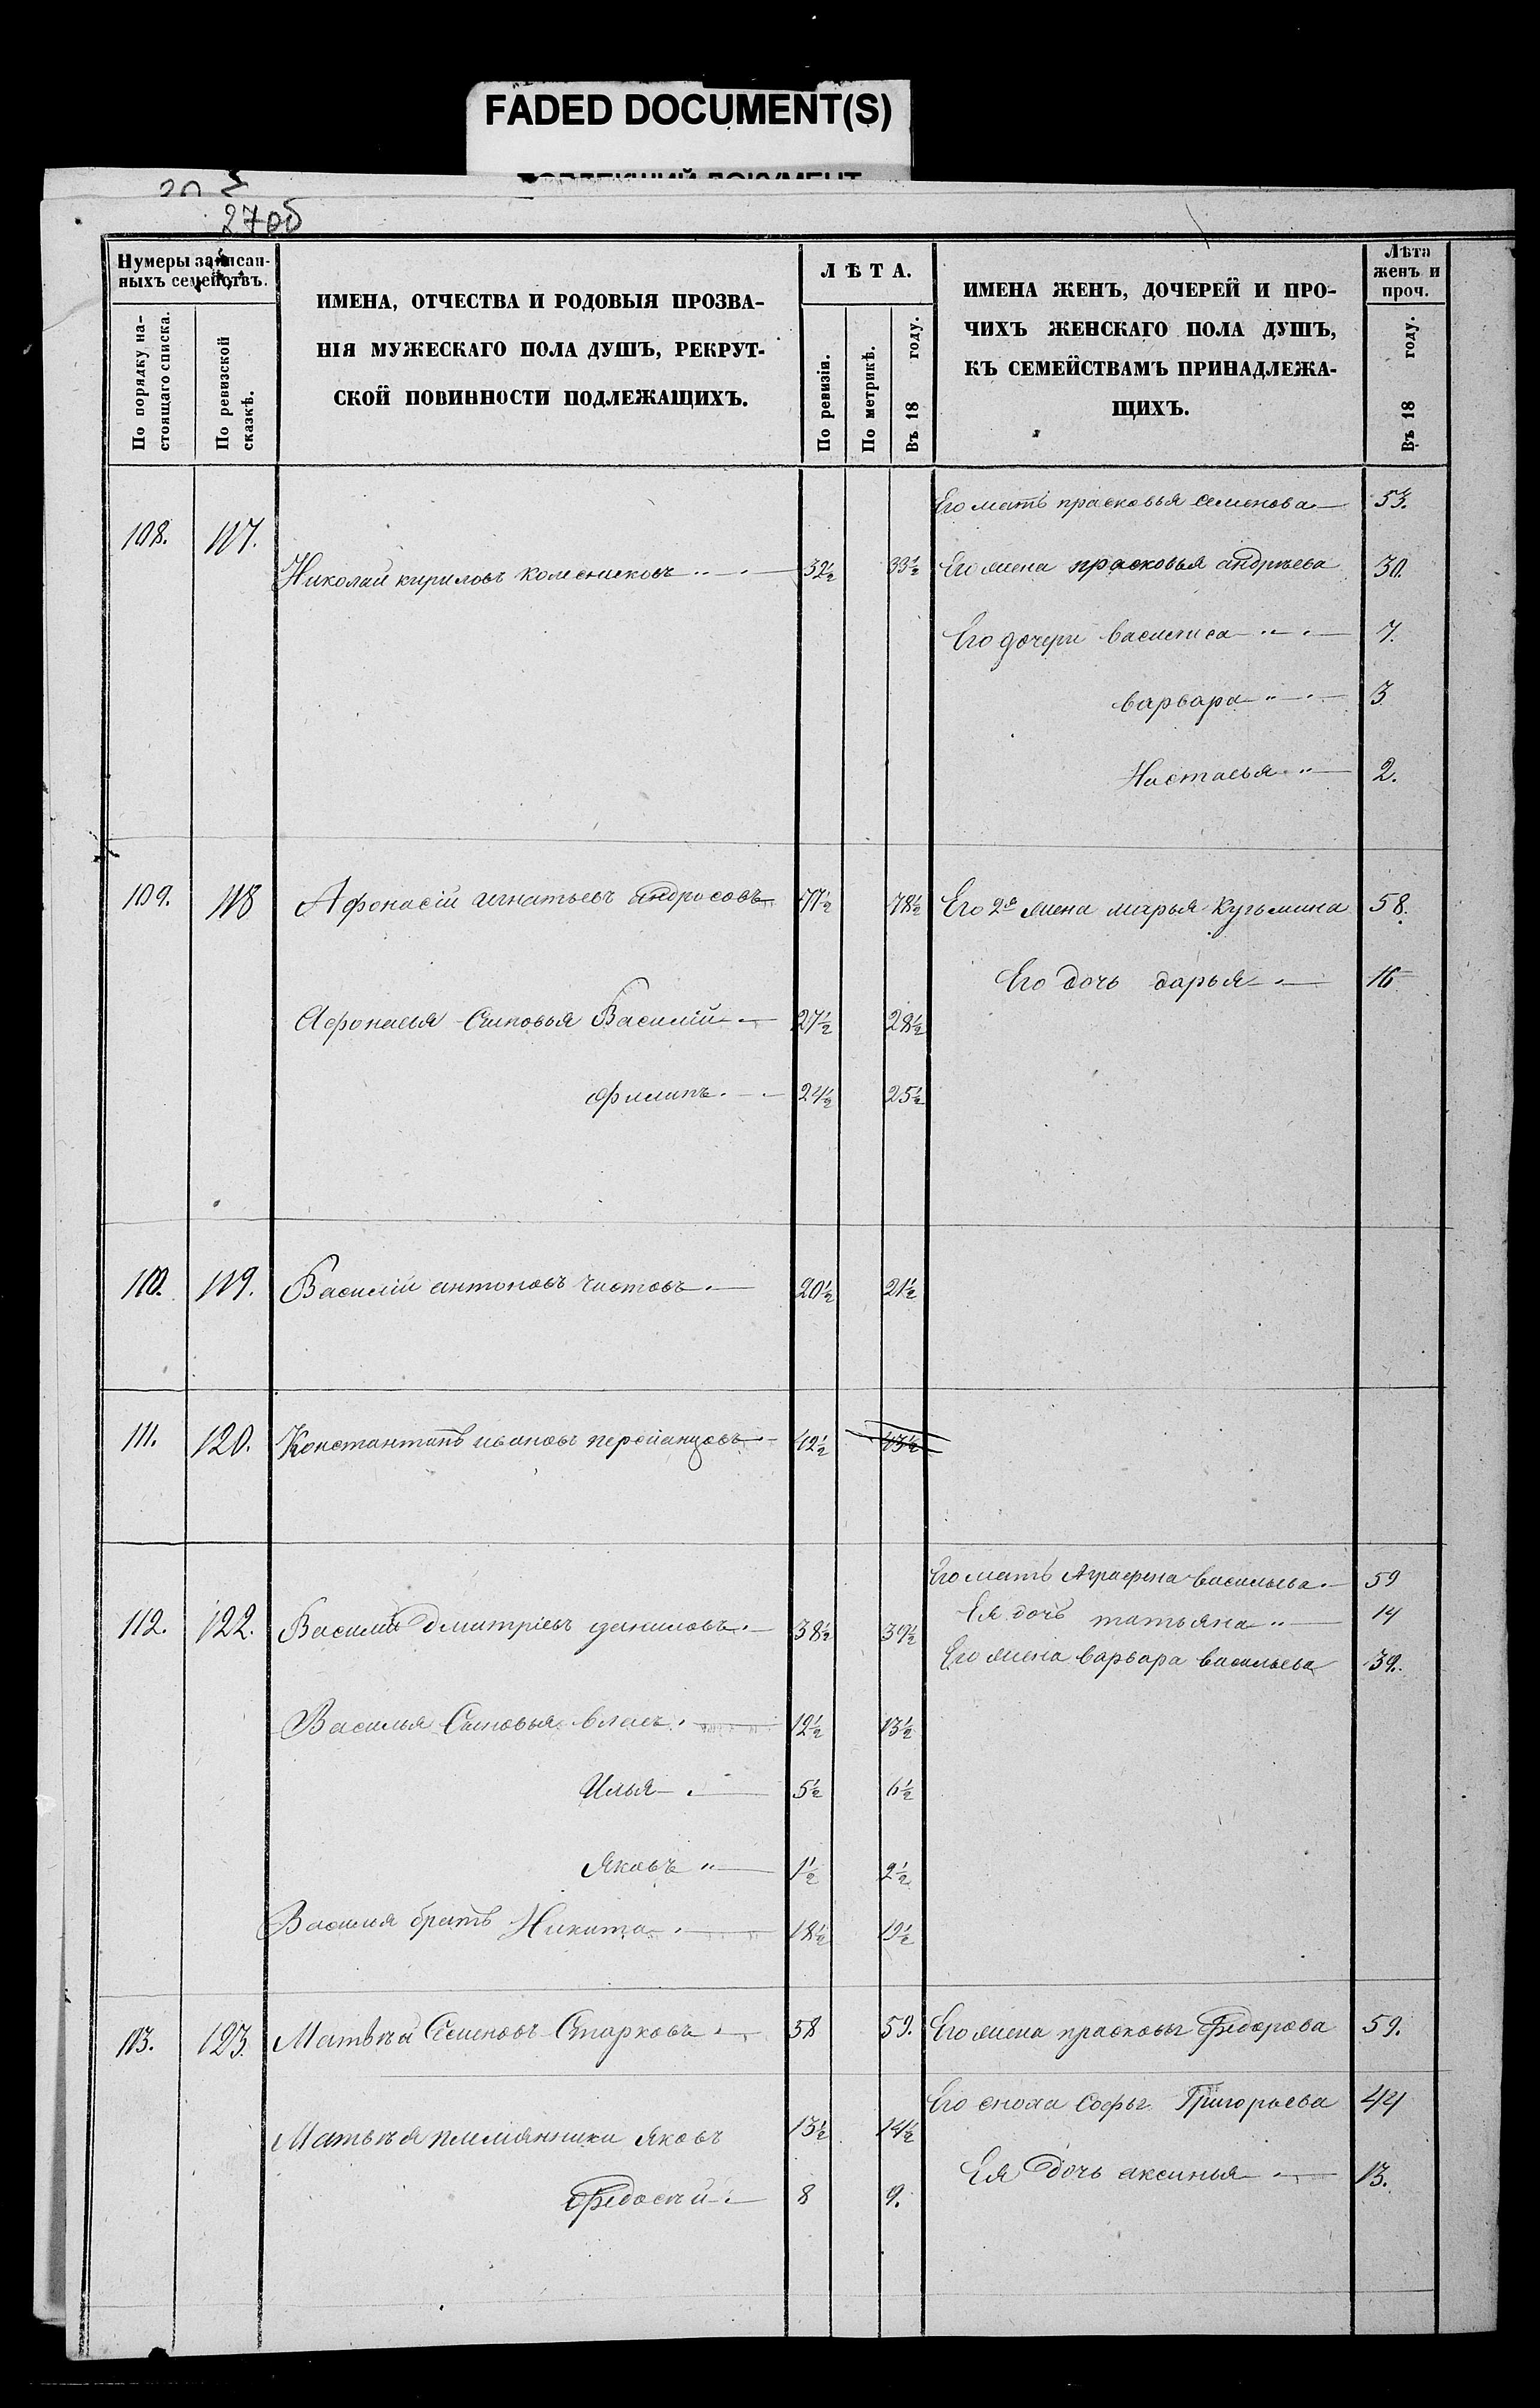 FADED DOCUMENT(S)
27об
Нумеры записан-
ныхъ семействъ.
По порядку на-
стоящаго списка.
По ревизской
сказкѣ.
ИМЕНА, ОТЧЕСТВА И РОДОВЫЯ ПРОЗВА-
НІЯ МУЖЕСКАГО ПОЛА ДУШЪ, РЕКРУТ-
СКОЙ ПОВИННОСТИ ПОДЛЕЖАЩИХЪ.
ЛѢТА.
По ревизіи.
По метрикѣ.
Въ 18 году.
ИМЕНА ЖЕНЪ, ДОЧЕРЕЙ И ПРО-
ЧИХЪ ЖЕНСКАГО ПОЛА ДУШЪ,
КЪ СЕМЕЙСТВАМЪ ПРИНАДЛЕЖА-
ЩИХЪ.
Лѣта
женъ и
проч.
Въ 18 году.
Его мать прасковья семенова 53.
108. 117. Николай кириловъ колесниковъ 32½ 33½ Его жена прасковья андрѣева 30.
Его дочери василиса 7.
варвара 3
Настасья 2.
109. 118 Афонасій игнатьевъ андросовъ 77½ 78½ Его 2я жена марья кузьмина 58.
Его дочь дарья 16
Афонасья Сыновья Василій 27½ 28½
филипъ 24½ 25½
110. 119. Василій антоновъ чистовъ 20½ 21½
111. 120. Константинъ ивановъ 42½ 43½
Его мать Аграфена васильева 59
Ея дочь татьяна 14
112. 122. Василій дмитріевъ даниловъ 38½ 39½
Его жена варвара васильева 39.
Василья Сыновья власъ 12½ 13½
Илья 5½ 6½
Яковъ 1½ 2½
Василия братъ Никита 18½ 19½
113. 123 Матвѣй Семеновъ Старковъ 58 59. Его жена прасковья Федорова 59.
Его сноха Софья Григорьева 44
Матвѣя племянники яковъ 13½ 14½
Ея дочь аксинья 13.
Федосѣй 8 9.